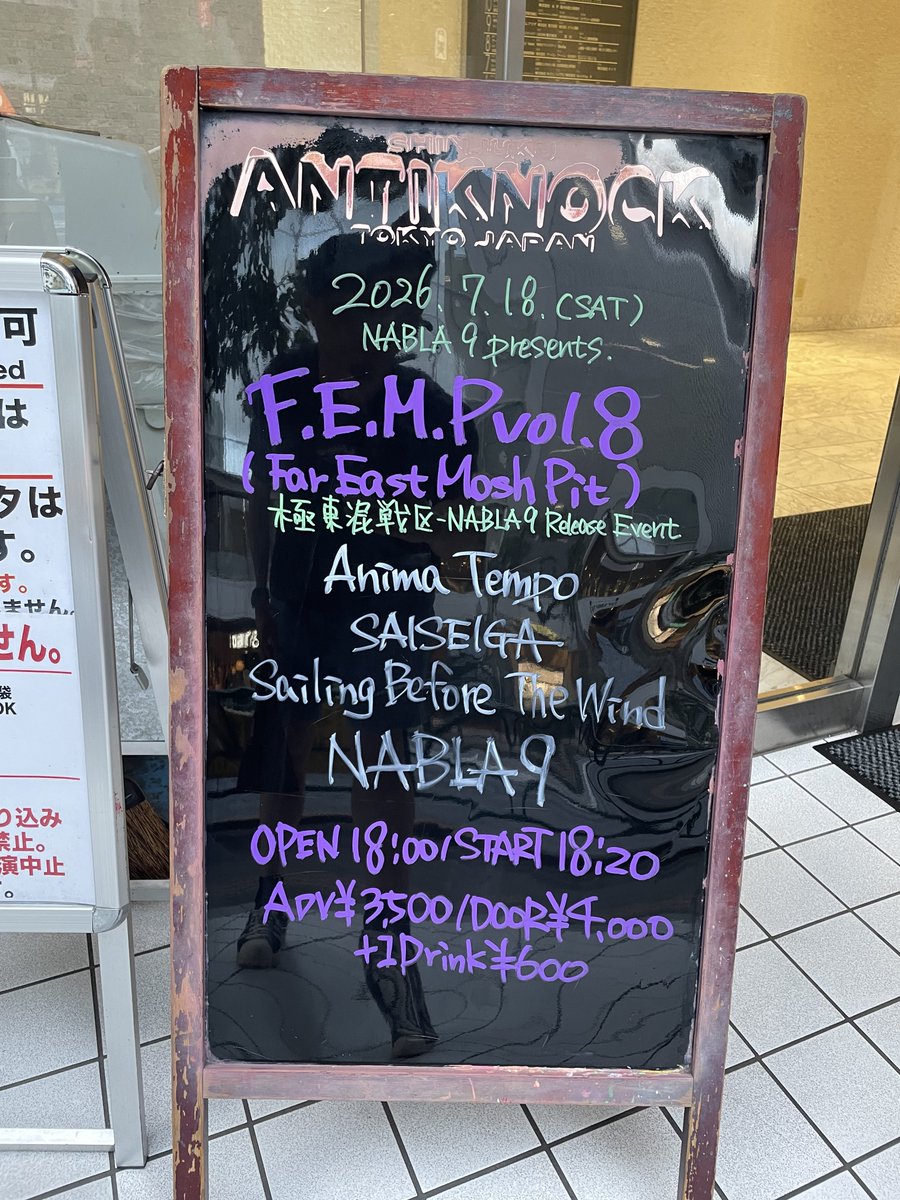 ANTIKNOCK
TOKYO JAPAN
2026. 7.18.(SAT)
NABLA 9 presents.
F.E.M.P vol.8
(Far East Mosh Pit)
極東混戦区-NABLA9 Release Event
Anima Tempo
SAISEIGA
Sailing Before The Wind
NABLA9
OPEN 18:00/START 18:20
ADV¥3,500/DOOR¥4,000
+1Drink¥600
可
ed
は
タは
す。
す。
ません。
せん。
袋
OK
り込み
禁止。
演中止
す。